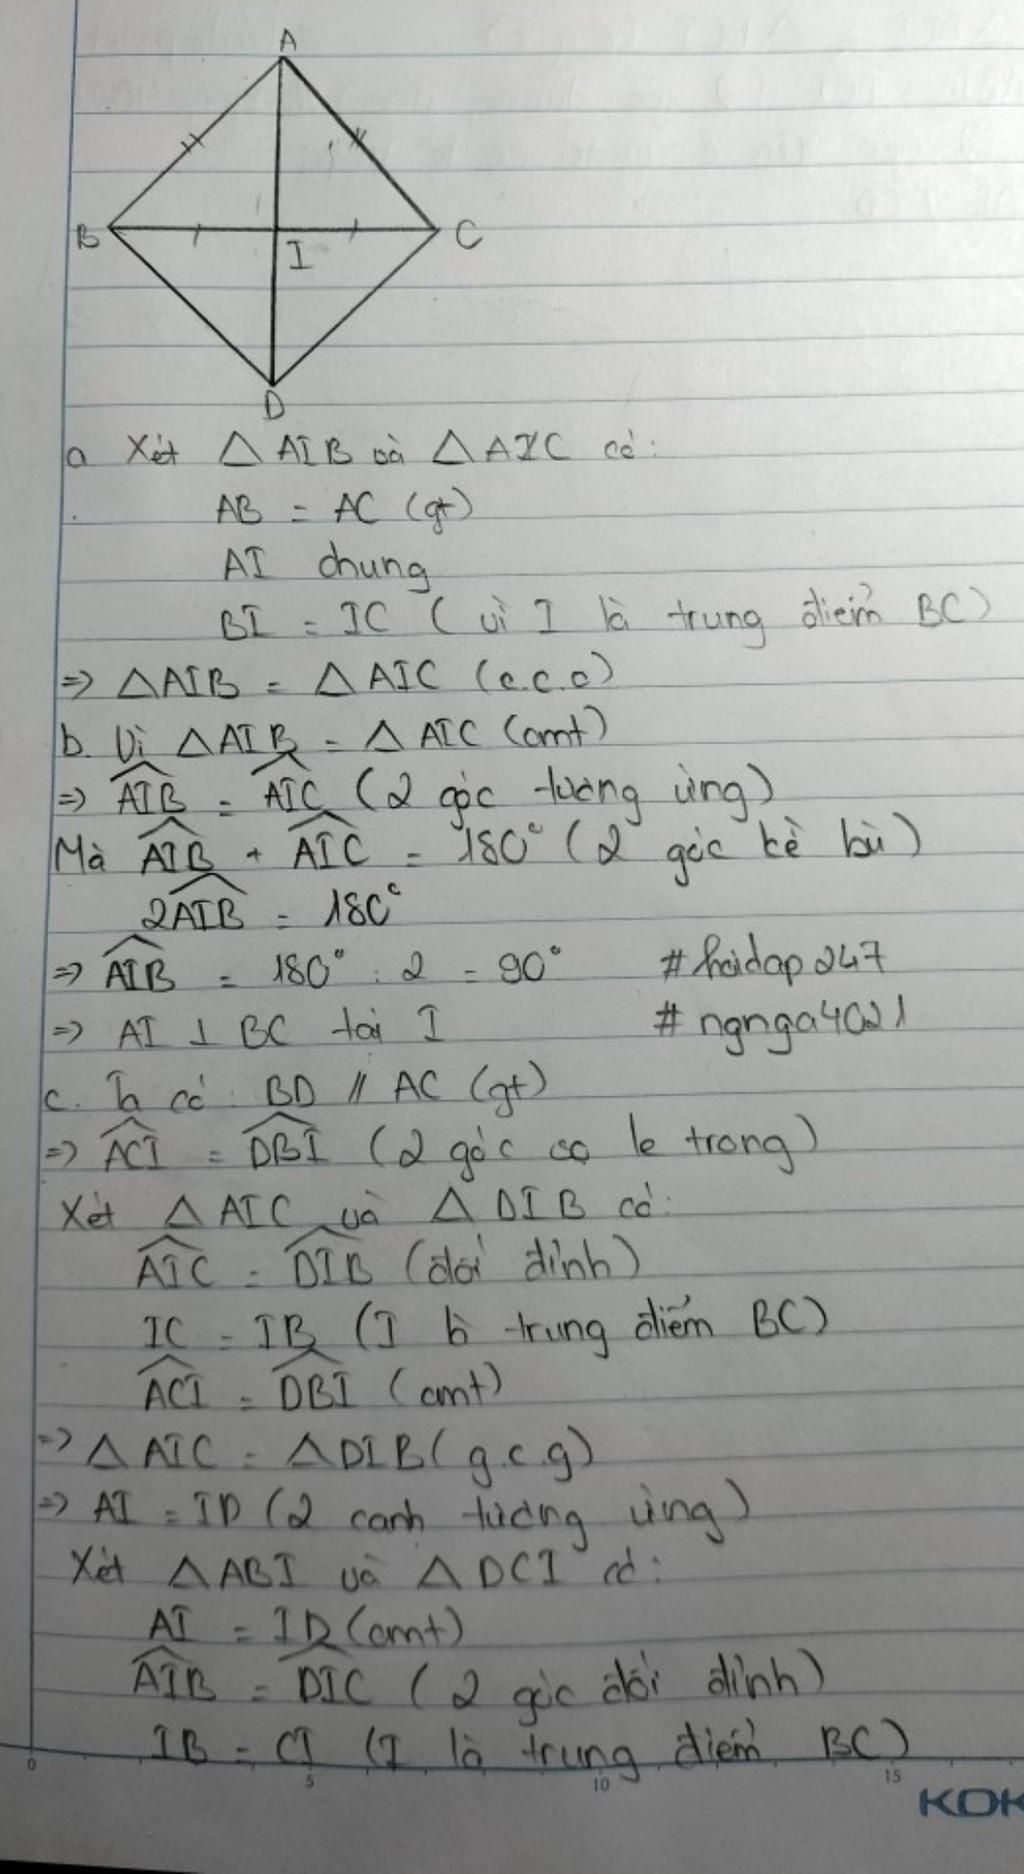 A
B
I
C
D
a Xét △AIB và △AIC có:
AB = AC (gt)
AI chung
BI = IC (vì I là trung điểm BC)
=> △AIB = △AIC (c.c.c)
b. Vì △AIB = △AIC (cmt)
=> AIB = AIC (2 góc tương ứng)
Mà AIB + AIC = 180° (2 góc kề bù)
2AIB = 180°
=> AIB = 180° : 2 = 90° #hoidap247
=> AI ⊥ BC tại I #ngnga4021
c. Ta có: BD // AC (gt)
=> ACI = DBI (2 góc so le trong)
Xét △AIC và △DIB có:
AIC = DIB (đối đỉnh)
IC = IB (I là trung điểm BC)
ACI = DBI (cmt)
=> △AIC = △DIB (g.c.g)
=> AI = ID (2 cạnh tương ứng)
Xét △ABI và △DCI có:
AI = ID (cmt)
AIB = DIC (2 góc đối đỉnh)
IB = CI (I là trung điểm BC)
0 5 10 15
KOK